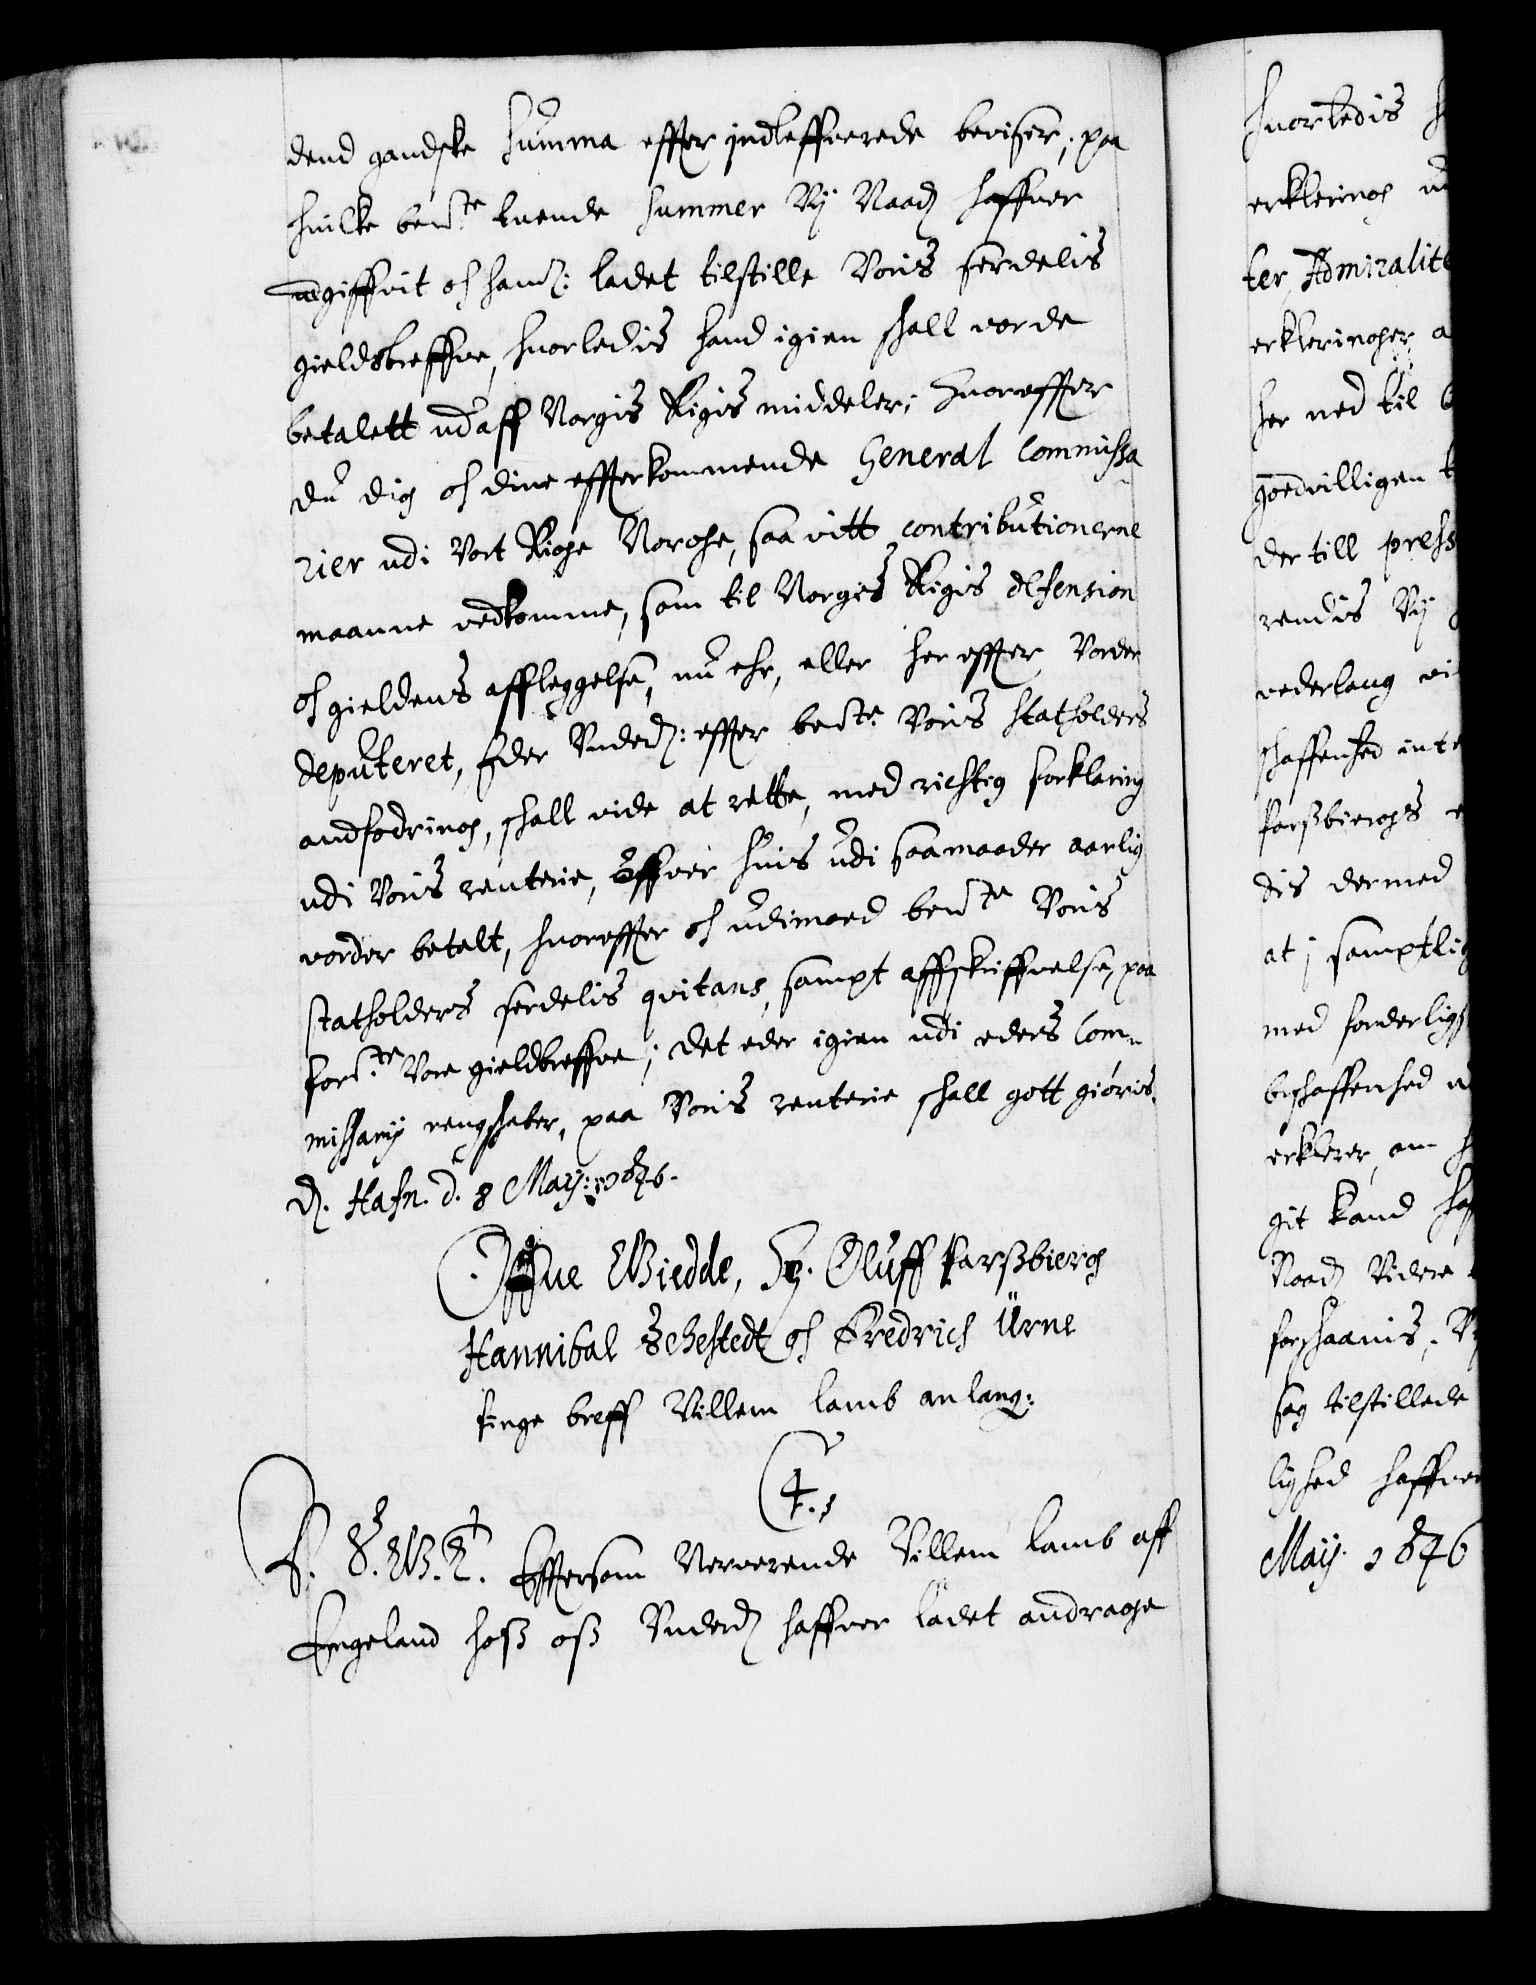 dend gandske Summa effter indleffverede beviser, paa
huilke bemte tuende summer Vy Naad haffver
udgiffvit och ham: ladet tilstille Voris serdelis
gieldsbreffve, huorledis hand igien skall vorde
betalett ud aff Norgis Rigis middeler; Huoreffter
du dig och dine effterkommende General Commissa-
rier udi Vort Rige Norge, saa vitt contributionerne
maanne vedkomme, som til Norgis Rigis defension
och gieldens affleggelse, nu ehr, eller her effter Vorder
deputeret, Eder Underd: effter bemte Voris Statholders
andfodring, skall vide at rette, med richtig forklaring
udi Voris renterie, offver huis udi saamaader aarlig
vorder betalt, huoreffter och udimoed bemte Voris
Statholders serdelis qvitans, sampt affskriffvelse, paa
forte Vore gieldbreffve; det eder igien udi eders Com-
missarij rengskaber, paa Voris renterie skall gott giöris.
D. Hafn. d. 8 Maij: 1646.
Offue Giedde, H. Oluff Parßbierg
Hannibal Sehestedt och Fredrich Urne
finge breff Villem Lamb anlang:
C4.s
Effersom Nerverende Villem Lamb aff
Engeland hoß oß Underd haffver ladet andrage
huorledis
erklering
ter Admiralite
erkleringer
her ned til
goedvilligen
der till press
rendis Vy
vederlaug
skaffenhed
Parßbiergs
dis dermed
at j samptlig
med forderligs
beskaffenhed
erklerer, om
git kand
Naad Videre
forskaanis,
sag tilstillede
lighed haffver
Maij. 1646